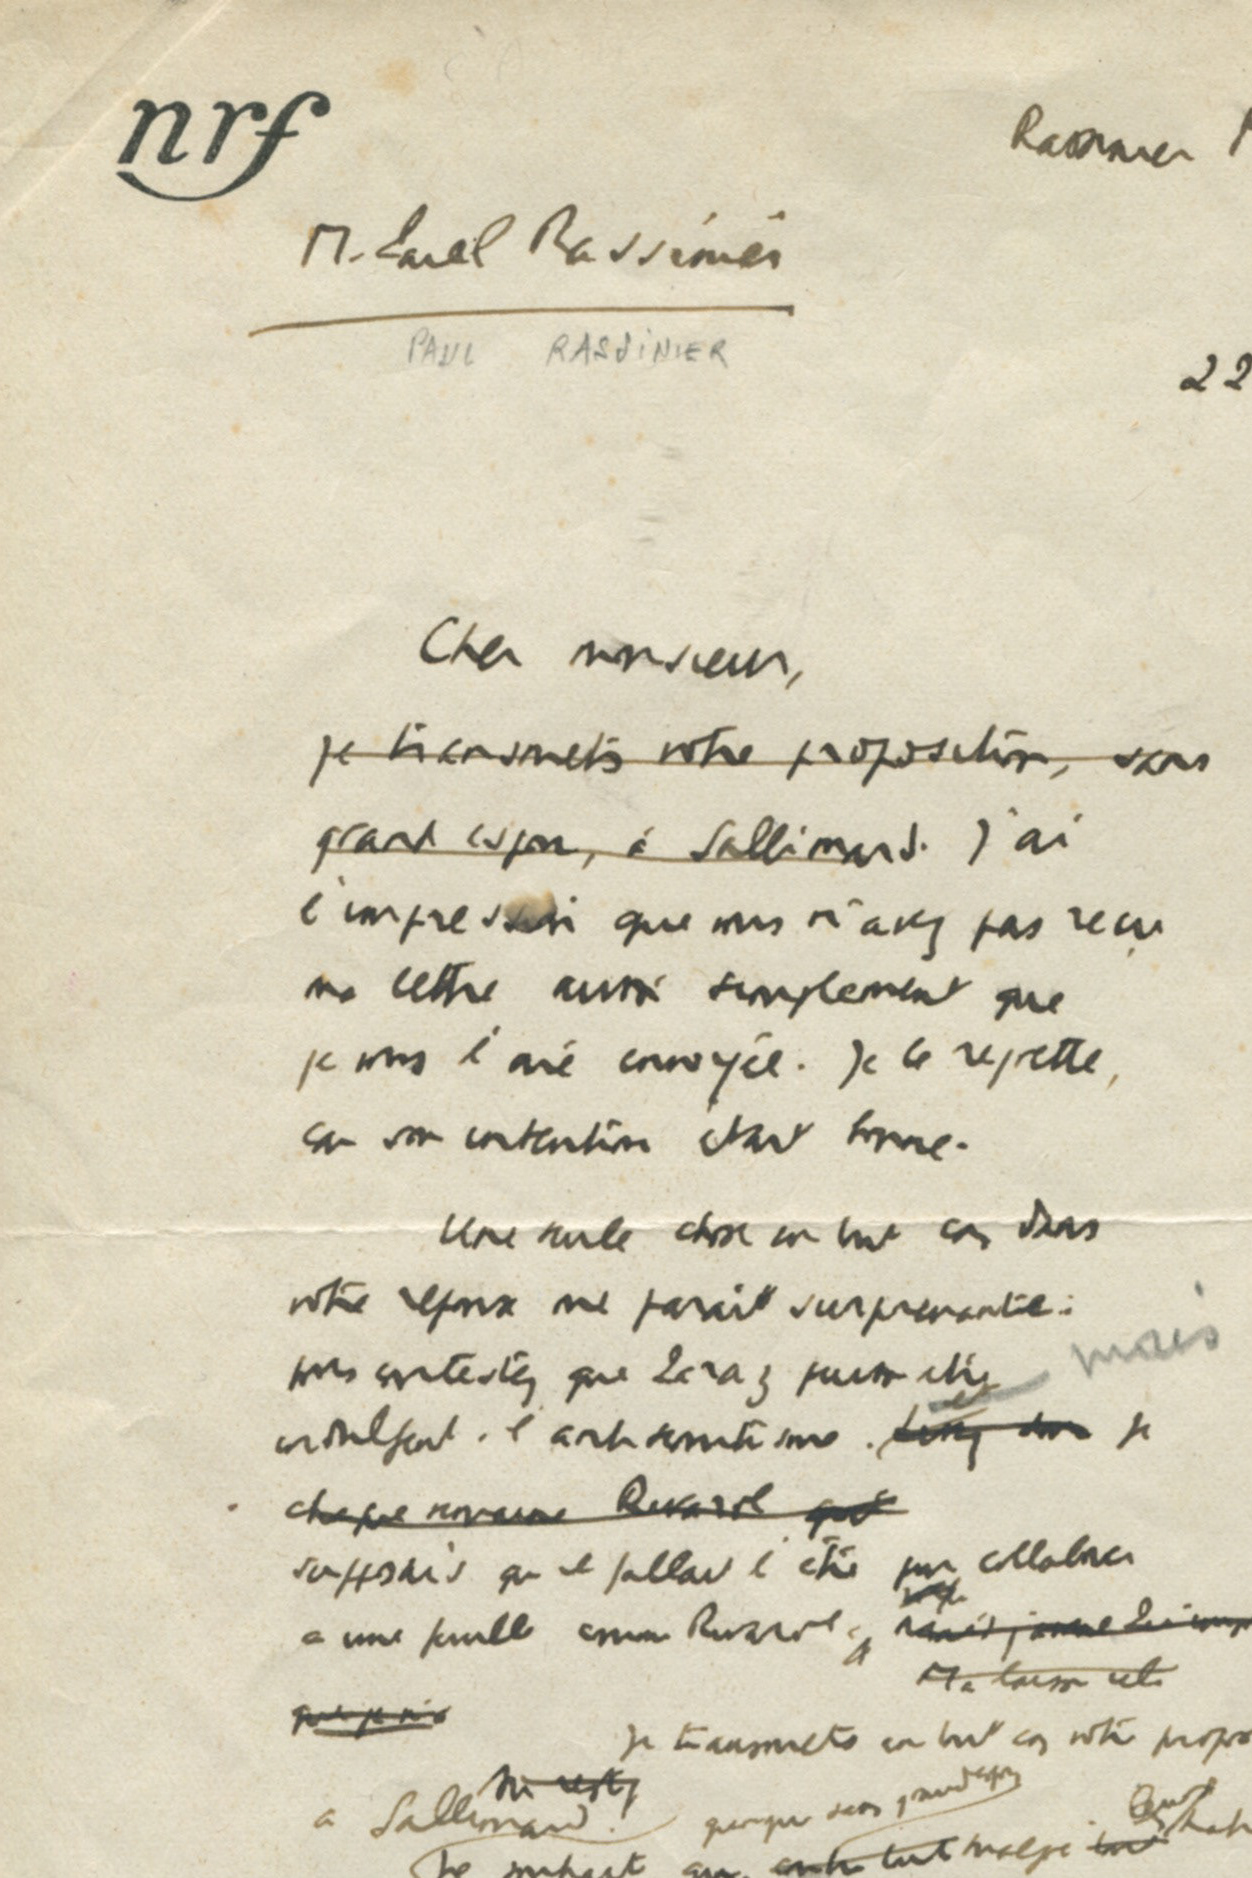 nrf
Rassinier
M. Paul Rassinier
PAUL RASSINIER
22
Cher monsieur,
je transmets votre proposition, sans
grand espoir, à Gallimard. J'ai
l'impression que vous n'avez pas reçu
ma lettre aussi simplement que
je vous l'ai envoyée. Je le regrette,
car son intention était bonne.
Une seule chose en tout cas dans
votre réponse me paraît surprenante :
vous contestez que puisse être
mais
indulgent à l'antisémitisme. Je
chaque semaine Rivarol
supposais qu'il fallait l'être pour collaborer
à une feuille comme Rivarol
Mais laissons cela
que je n'ai
Je transmets en tout cas votre propo
à Gallimard. quoique sans grand espoir
Je souhait que malgré